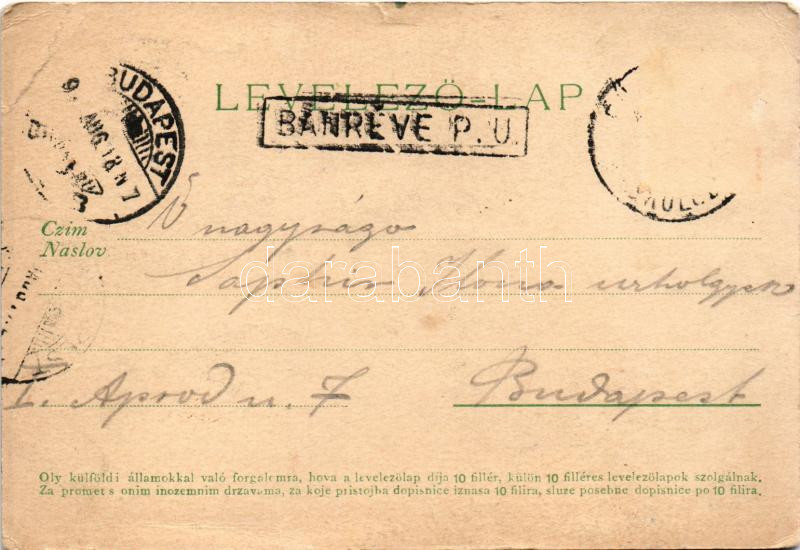 LEVELEZŐ-LAP
BÁNRÉVE P. U.
BUDAPEST
AUG 18 N 7
Czim
Naslov
Ő nagysága
Saphir Ilona urhölgynek
I. Aprod u. 7 Budapest
darabanth
Oly külföldi államokkal való forgalomra, hova a levelezőlap díja 10 fillér, külön 10 filléres levelezőlapok szolgálnak.
Za promet s onim inozemnim drzavama, za koje pristojba dopisnice iznasa 10 filira, sluze posebne dopisnice po 10 filira.